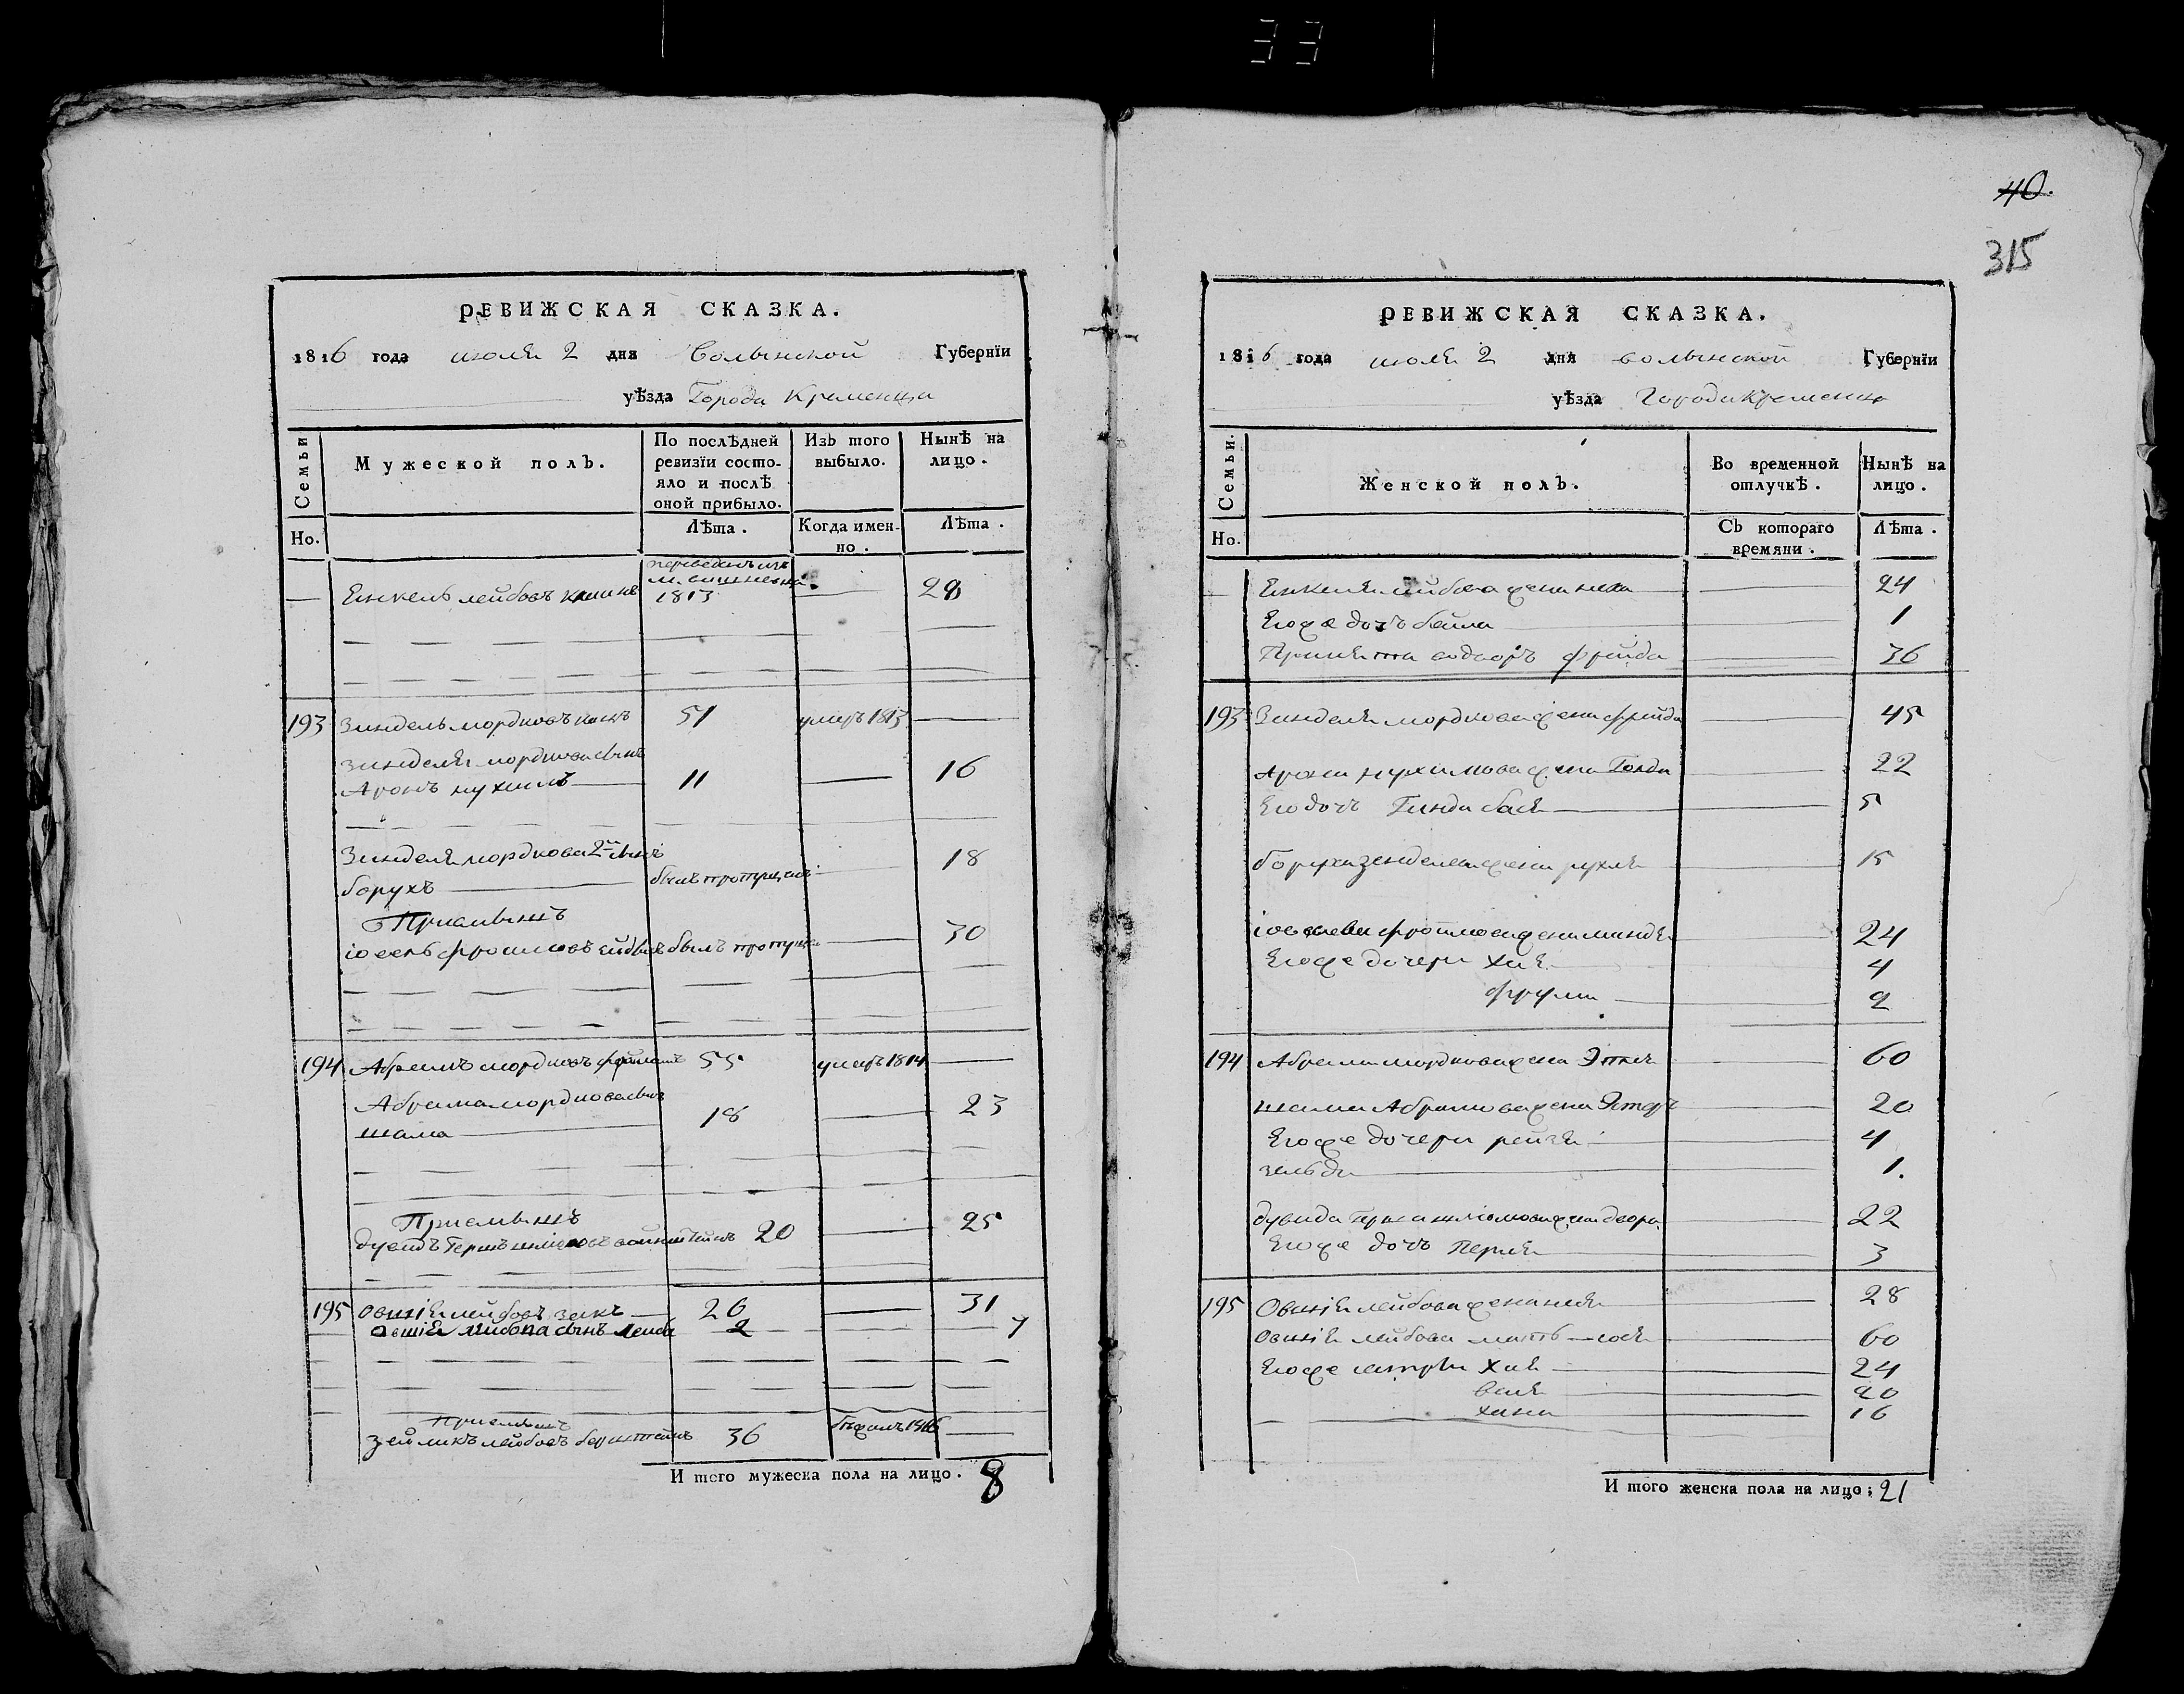 33
РЕВИЖСКАЯ СКАЗКА.
1816 года июля 2 дня Волынской Губернїи
уѣзда Города Кременца
Семьи
Мужеской полъ.
По послѣдней ревизїи состо-
яло и послѣ
оной прибыло.
Изъ того
выбыло.
Нынѣ на
лицо.
Но.
Лѣта.
Когда имен-
но.
Лѣта.
переведенъ изъ
м. вишневца
— Енкель лейбовъ 1813 — 28
193 Зиндель мордковъ 51 умеръ 1813 —
Зинделя мордкова сынъ
Аронъ нухимъ — 11 — 16
Зинделя мордкова 2й сынъ
борухъ — былъ пропущенъ — 18
Приемышъ
іосель фроимовъ былъ пропущ — 30
194 Абрамъ мордковъ 55 умеръ 1814 —
Абрама мордкова сынъ
шама — 18 — 23
Приемышъ
дувидъ Гершъ шліомовъ вайнштейнъ 20 — 25
195 Овшія лейбовъ закъ — 26 — 31
Овшія лейбова сынъ лейба 2 — 7
Приемышъ
зейликъ лейбовъ беринштейнъ 36 —
И того мужеска пола на лицо. 8
40.
315
РЕВИЖСКАЯ СКАЗКА.
1816 года июля 2 дня волынской Губернїи
уѣзда Города Кременца
Семьи.
Женской полъ.
Во временной
отлучкѣ.
Нынѣ на
лицо.
Но.
Съ котораго
времяни.
Лѣта.
— Енкеля лейбова жена — 24
Егоже дочъ бейла — 1
фрейда — 36
193 Зинделя мордкова жена фрейда — 45
Арона нухимова жена Голда — 22
Его дочъ Гинда бася — 5
боруха зенделева жена рухля — 15
іоселя фроимова жена миндя — 24
Егоже дочери хая — 4
фрума — 2
194 Абрама мордкова жена Этля — 60
шама Абрамова жена Эстеръ — 20
Егоже дочери рейзя — 4
зельда — 1.
дувида Герша шліомова жена двора — 22
Егоже дочъ перля — 3
195 Овшія лейбова жена — 28
Овшія лейбова мать — 60
Егоже сестры хая — 24
бейля — 20
хана — 16
И того женска пола на лицо: 21